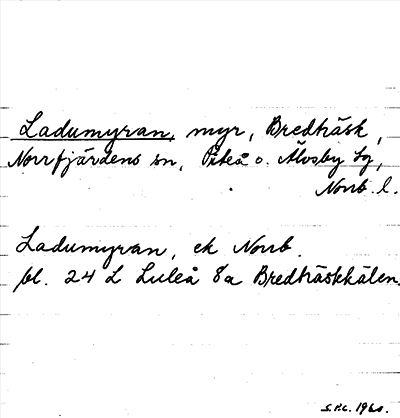 Ladumyran, myr, Bredträsk,
Norrfjärdens sn, Piteå o. Älvsby tg,
Norrb. l.
Ladumyran, ek Norrb.
bl. 24 L Luleå 8a Bredträskkälen.
1960.